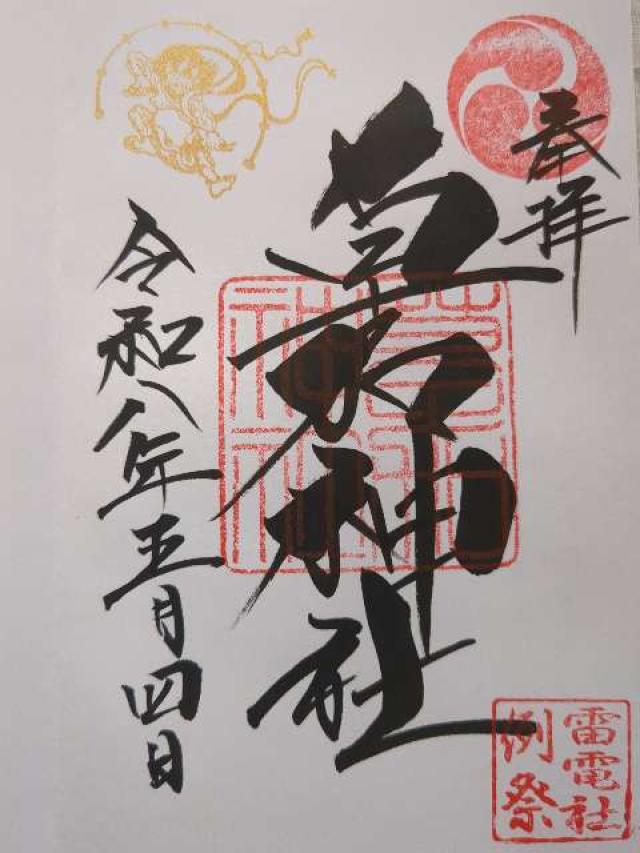 奉拝
嘉神社
令和八年五月四日
雷電社
例祭